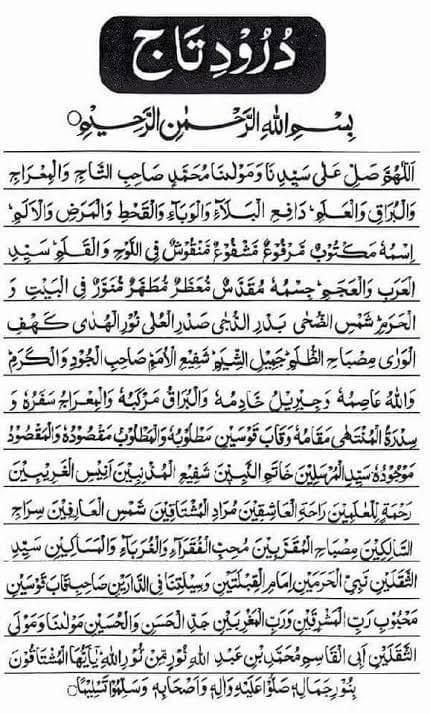 دُرُوْدِ تَاج
بِسْمِ اللهِ الرَّحْمٰنِ الرَّحِيْمِ
اَللّٰهُمَّ صَلِّ عَلٰى سَيِّدِنَا وَمَوْلٰنَا مُحَمَّدٍ صَاحِبِ التَّاجِ وَالْمِعْرَاجِ
وَالْبُرَاقِ وَالْعَلَمِ دَافِعِ الْبَلَآءِ وَالْوَبَآءِ وَالْقَحْطِ وَالْمَرَضِ وَالْاَلَمِ
اِسْمُهٗ مَكْتُوْبٌ مَّرْفُوْعٌ مَّشْفُوْعٌ مَّنْقُوْشٌ فِى اللَّوْحِ وَالْقَلَمِ سَيِّدِ
الْعَرَبِ وَالْعَجَمِ جِسْمُهٗ مُقَدَّسٌ مُّعَطَّرٌ مُّطَهَّرٌ مُّنَوَّرٌ فِى الْبَيْتِ وَ
الْحَرَمِ شَمْسِ الضُّحٰى بَدْرِ الدُّجٰى صَدْرِ الْعُلٰى نُوْرِ الْهُدٰى كَهْفِ
الْوَرٰى مِصْبَاحِ الظُّلَمِ جَمِيْلِ الشِّيَمِ شَفِيْعِ الْاُمَمِ صَاحِبِ الْجُوْدِ وَالْكَرَمِ
وَاللهُ عَاصِمُهٗ وَجِبْرِيْلُ خَادِمُهٗ وَالْبُرَاقُ مَرْكَبُهٗ وَالْمِعْرَاجُ سَفَرُهٗ وَ
سِدْرَةُ الْمُنْتَهٰى مَقَامُهٗ وَقَابَ قَوْسَيْنِ مَطْلُوْبُهٗ وَالْمَطْلُوْبُ مَقْصُوْدُهٗ وَالْمَقْصُوْدُ
مَوْجُوْدُهٗ سَيِّدِ الْمُرْسَلِيْنَ خَاتَمِ النَّبِيِّيْنَ شَفِيْعِ الْمُذْنِبِيْنَ اَنِيْسِ الْغَرِيْبِيْنَ
رَحْمَةٍ لِّلْعٰلَمِيْنَ رَاحَةِ الْعَاشِقِيْنَ مُرَادِ الْمُشْتَاقِيْنَ شَمْسِ الْعَارِفِيْنَ سِرَاجِ
السَّالِكِيْنَ مِصْبَاحِ الْمُقَرَّبِيْنَ مُحِبِّ الْفُقَرَآءِ وَالْغُرَبَآءِ وَالْمَسَاكِيْنِ سَيِّدِ
الثَّقَلَيْنِ نَبِيِّ الْحَرَمَيْنِ اِمَامِ الْقِبْلَتَيْنِ وَسِيْلَتِنَا فِى الدَّارَيْنِ صَاحِبِ قَابَ قَوْسَيْنِ
مَحْبُوْبِ رَبِّ الْمَشْرِقَيْنِ وَرَبِّ الْمَغْرِبَيْنِ جَدِّ الْحَسَنِ وَالْحُسَيْنِ مَوْلٰنَا وَمَوْلَى
الثَّقَلَيْنِ اَبِى الْقَاسِمِ مُحَمَّدِ بْنِ عَبْدِ اللهِ نُوْرٍ مِّنْ نُّوْرِ اللهِ يٰٓاَيُّهَا الْمُشْتَاقُوْنَ
بِنُوْرِ جَمَالِهٖ صَلُّوْا عَلَيْهِ وَاٰلِهٖ وَاَصْحَابِهٖ وَسَلِّمُوْا تَسْلِيْمًا